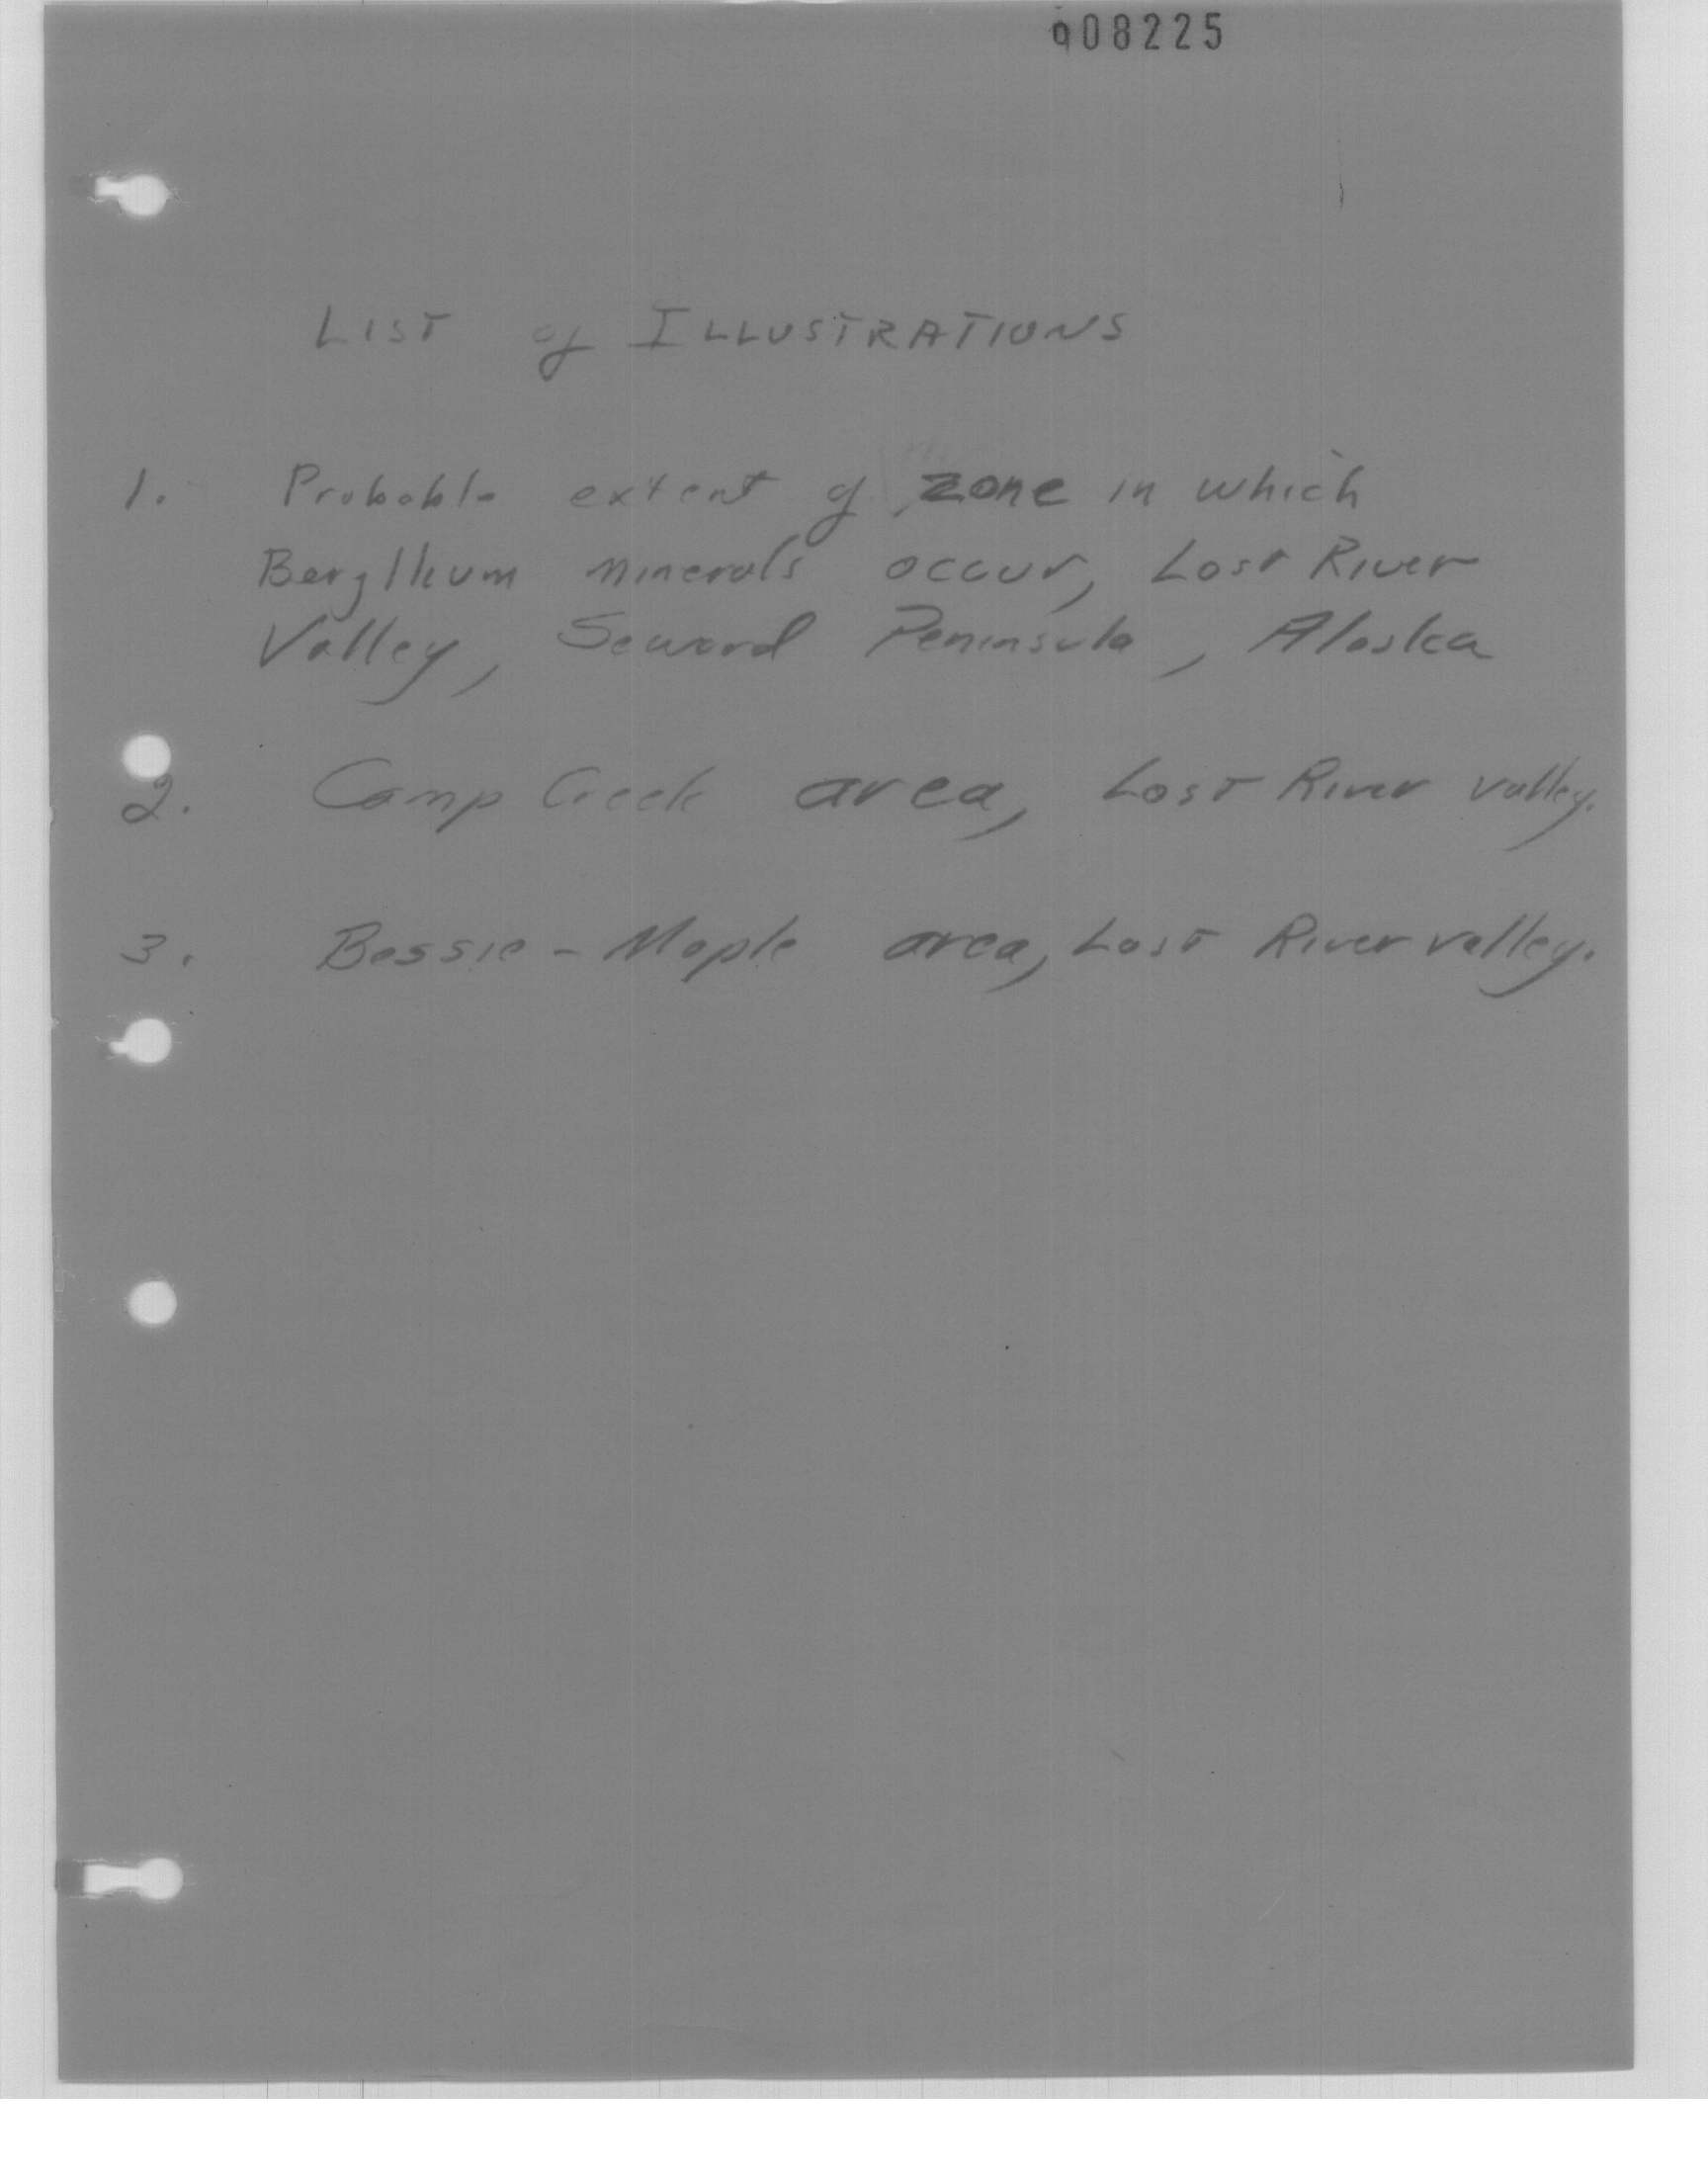 008225
LIST of ILLUSTRATIONS
1. Probable extent of zone in which
Beryllium minerals occur, Lost River
Valley, Seward Peninsula, Alaska
2. Camp Creek area, Lost River valley.
3. Bessie-Maple area, Lost River valley.